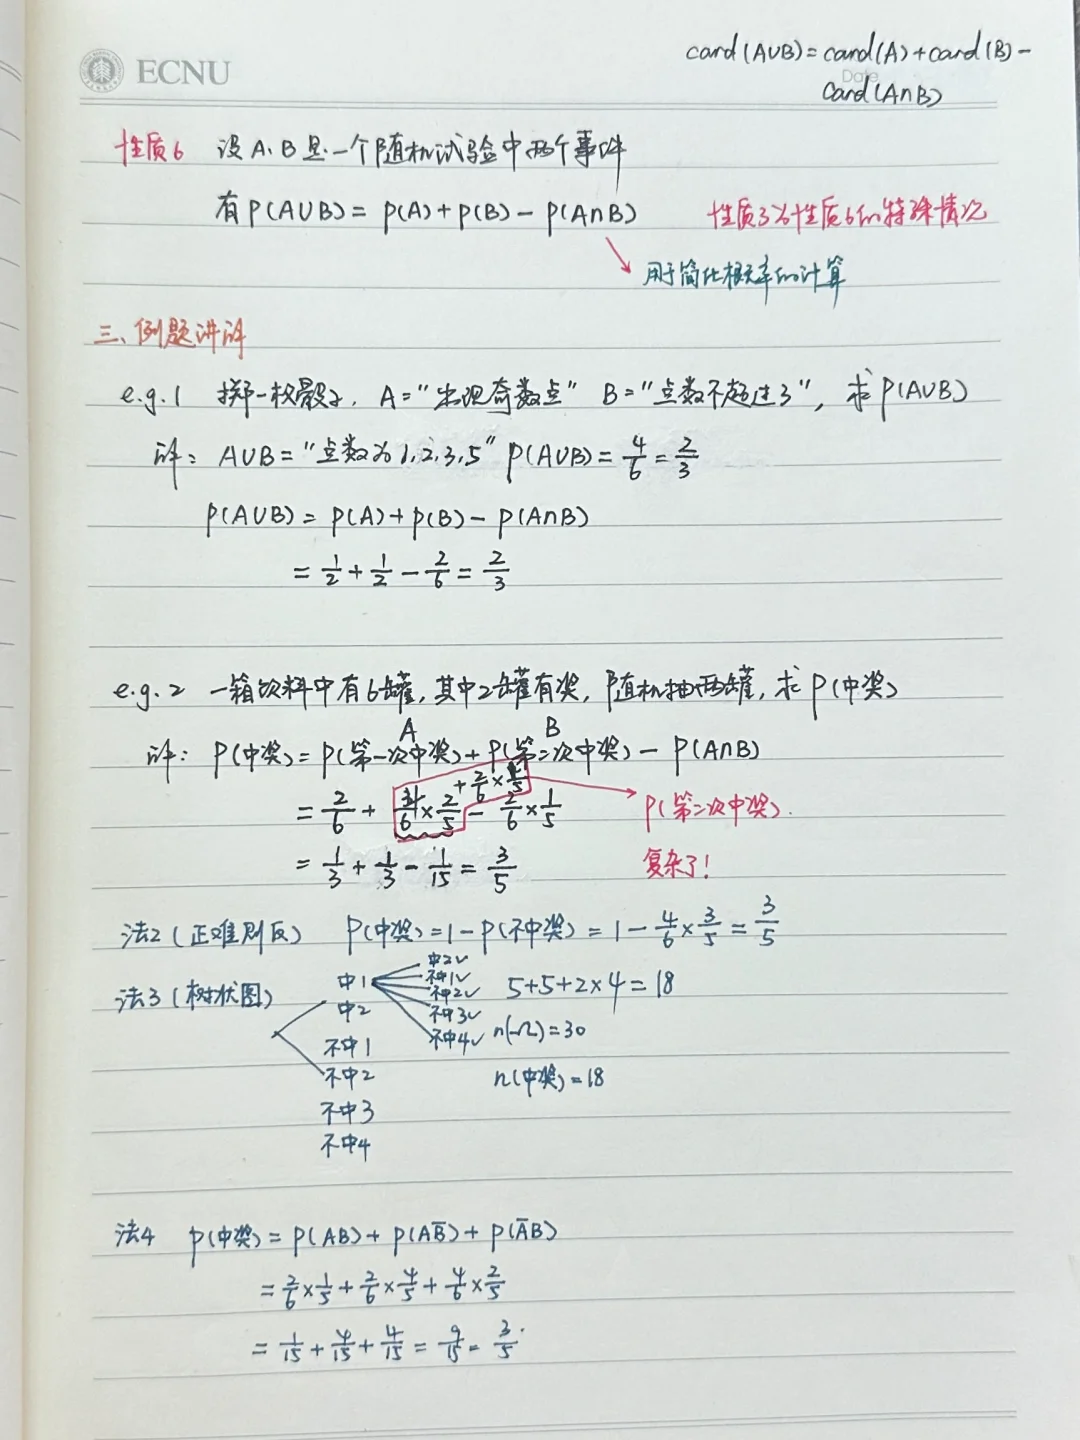 ECNU
card(A∪B)=card(A)+card(B)-
Date
Card(A∩B)
性质6 设A、B是一个随机试验中两个事件
有P(A∪B)=P(A)+P(B)-P(A∩B) 性质3为性质6的特殊情况
用于简化概率的计算
三、例题讲解
e.g.1 掷一枚骰子,A="出现奇数点" B="点数不超过3",求P(A∪B)
解:A∪B="点数为1,2,3,5" P(A∪B)=4/6=2/3
P(A∪B)=P(A)+P(B)-P(A∩B)
=1/2+1/2-2/6=2/3
e.g.2 一箱饮料中有6罐,其中2罐有奖,随机抽两罐,求P(中奖)
A B
解:P(中奖)=P(第一次中奖)+P(第二次中奖)-P(A∩B)
+2/6×1/5
=2/6+4/6×2/5-2/6×1/5 P(第二次中奖).
=1/3+1/3-1/15=3/5 复杂了!
法2(正难则反) P(中奖)=1-P(不中奖)=1-4/6×3/5=3/5
法3(树状图) 中1 中2√
不中1√
不中2√ 5+5+2×4=18
中2 不中3√
不中4√ n(Ω)=30
不中1
不中2 n(中奖)=18
不中3
不中4
法4 P(中奖)=P(AB)+P(AB̅)+P(A̅B)
=2/6×1/5+2/6×4/5+4/6×2/5
=1/15+4/15+4/15=9/15=3/5.